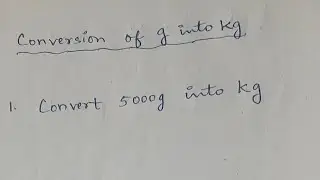 Conversion of g into kg
1. Convert 5000g into kg